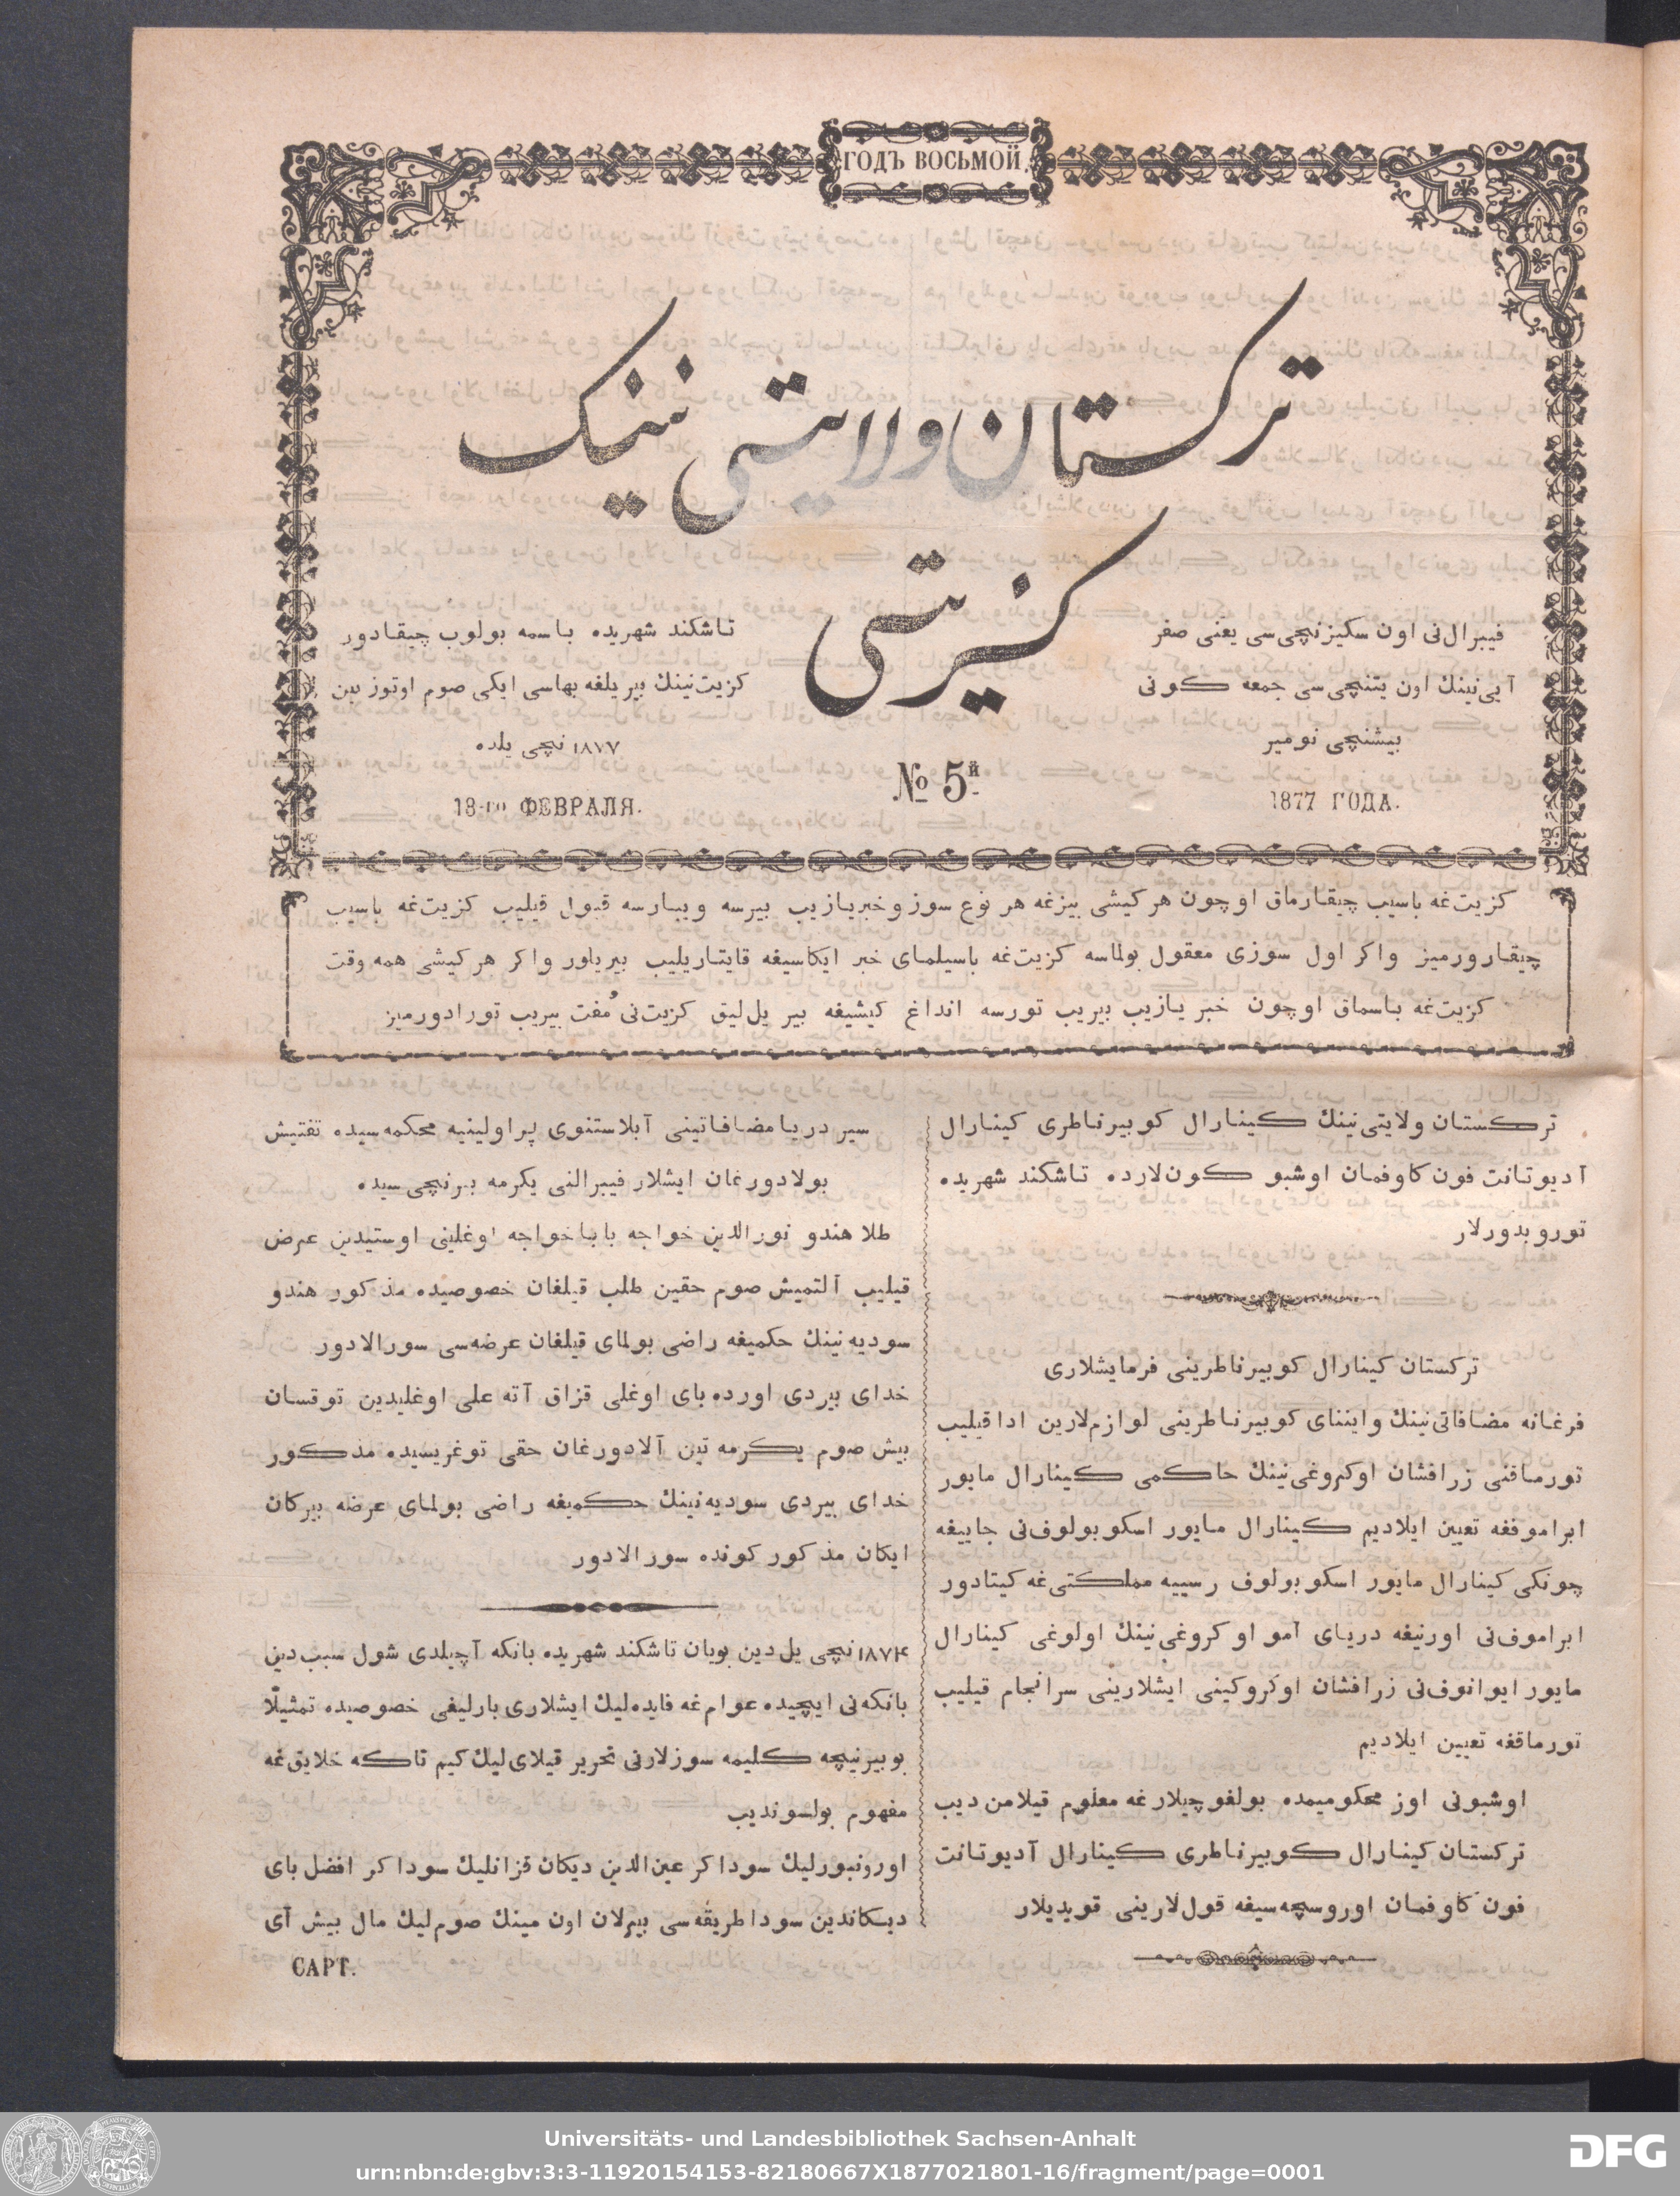 ГОДЪ ВОСЬМОЙ.
ترکستان ولایتی نینک
کزیتی
فیبرال‌نی اون سکیزنچی‌سی یعنی صفر
آیی‌نینك اون یتنچی‌سی جمعه کونی
بیشنچی نومیر
1877 ГОДА.
№ 5й
تاشکند شهریده باسمه بولوب چیقادور
کزیت‌نینك بیر یلغه بهاسی ایکی صوم اوتوز تین
۱۸۷۷ نچی یلده
18-го ФЕВРАЛЯ.
کزیت‌غه باسیب چیقارماق اوچون هر کیشی بیزغه هر نوع سوز و خبر یازیب بیرسه و یبارسه قبول قیلیب کزیت‌غه باسیب
چیقارورمیز واکر اول سوزی معقول بولماسه کزیت‌غه باسیلمای خبر ایکاسیغه قایتاریلیب بیریلور واکر هر کیشی همه وقت
کزیت‌غه باسماق اوچون خبر یازیب بیریب تورسه انداغ کیشیغه بیر یل‌لیق کزیت‌نی مُفت بیریب تورادورمیز
ترکستان ولایتی‌نینك کینارال کوبیرناطری کینارال
آدیوتانت فون کاوفمان اوشبو کون‌لارده تاشکند شهریده
توروبدورلار
ترکستان کینارال کوبیرناطرینی فرمایشلاری
فرغانه مضافاتی‌نینك واینای کوبیرناطرینی لوازم‌لارین ادا قیلیب
تورماقنی زرافشان اوکروغی‌نینك حاکمی کینارال مایور
ابراموفغه تعیین ایلادیم کینارال مایور اسکوبولوف‌نی جاییغه
چونکی کینارال مایور اسکوبولوف رسییه مملکتی‌غه کیتادور
ابراموف‌نی اورنیغه دریای آمو اوکروغی‌نینك اولوغی کینارال
مایور ایوانوف‌نی زرافشان اوکروکینی ایشلارینی سرانجام قیلیب
تورماقغه تعیین ایلادیم
اوشبونی اوز محکومیمده بولغوچیلارغه معلوم قیلامن دیب
ترکستان کینارال کوبیرناطری کینارال آدیوتانت
فون کاوفمان اوروسچه‌سیغه قول‌لارینی قویدیلار
سیر دریا مضافاتینی آبلاستنوی پراولینیه محکمه‌سیده تفتیش
بولادورغان ایشلار فیبرالنی یکرمه بیرنچی‌سیده
طلا هندو نورالدین خواجه بابا خواجه اوغلینی اوستیدین عرض
قیلیب آلتمیش صوم حقین طلب قیلغان خصوصیده مذکور هندو
سودیه‌نینك حکمیغه راضی بولمای قیلغان عرضه‌سی سورالادور
خدای بیردی اورده بای اوغلی قزاق آته علی اوغلیدین توقسان
بیش صوم یکرمه تین آلادورغان حقی توغریسیده مذکور
خدای بیردی سودیه‌نینك حکمیغه راضی بولمای عرضه بیرکان
ایکان مذکور کونده سورالادور
۱۸۷۴ نچی یل‌دین بویان تاشکند شهریده بانکه آچیلدی شول سبب‌دین
بانکه‌نی ایچیده عوام‌غه فایده‌لیك ایشلاری بارلیغی خصوصیده تمثیلًا
بو بیرنیچه کلیمه سوزلارنی تحریر قیلای‌لیك کیم تاکه خلایق‌غه
مفهوم بولسوندیب
اورونبورلیك سوداکر عین‌الدین دیکان قزانلیك سوداکر افضل بای
دیکاندین سودا طریقه‌سی بیرلان اون مینك صوم‌لیك مال بیش آی
САРТ.
Universitäts- und Landesbibliothek Sachsen-Anhalt
urn:nbn:de:gbv:3:3-11920154153-82180667X1877021801-16/fragment/page=0001
DFG